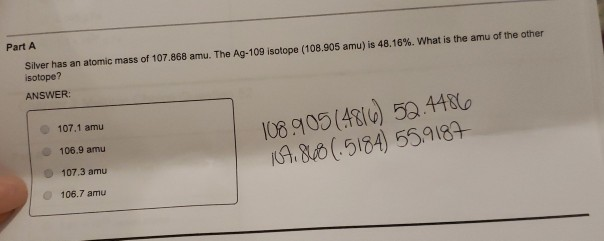 Part A
Silver has an atomic mass of 107.868 amu. The Ag-109 isotope (108.905 amu) is 48.16%. What is the amu of the other
isotope?
ANSWER:
107.1 amu
106.9 amu
107.3 amu
106.7 amu
108.905(.4816) 52.4486
107.868(.5184) 55.9187